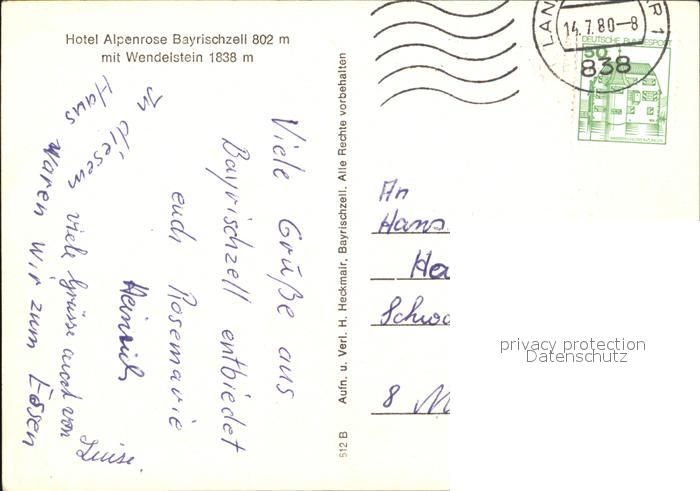 Hotel Alpenrose Bayrischzell 802 m
mit Wendelstein 1838 m
Viele Grüße aus
Bayrischzell entbiedet
euch Rosemarie
Heinrich
In diesem
Haus
waren wir zum Essen
viele Grüsse auch von
Luise.
512 B Aufn. u. Verl. H. Heckmair, Bayrischzell. Alle Rechte vorbehalten
LAN
R 1
14.7.80-8
838
DEUTSCHE BUNDESPOST
50
An
Hans
Her
Schwo
8 M
privacy protection
Datenschutz